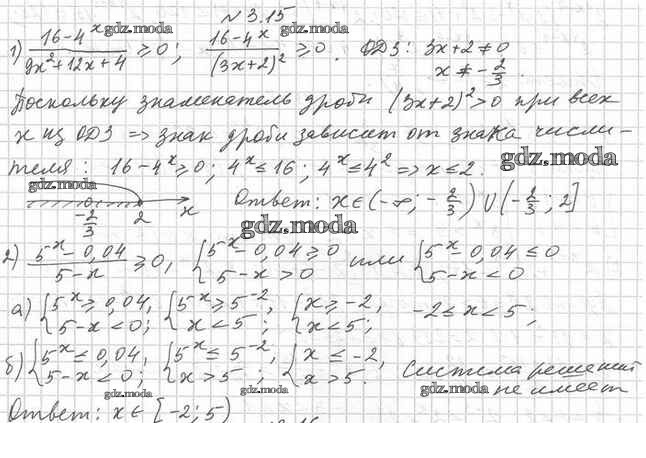 № 3.15
1) (16-4^x)/(9x²+12x+4) ≥ 0; (16-4^x)/(3x+2)² ≥ 0. ОДЗ: 3x+2 ≠ 0
x ≠ -2/3.
Поскольку знаменатель дроби (3x+2)² > 0 при всех
x из ОДЗ ⇒ знак дроби зависит от знака числи-
теля: 16-4^x ≥ 0; 4^x ≤ 16; 4^x ≤ 4² ⇒ x ≤ 2.
-2/3 2 x Ответ: x ∈ (-∞; -2/3) ∪ (-2/3; 2]
2) (5^-x - 0,04)/(5-x) ≥ 0, { 5^x - 0,04 ≥ 0 или { 5^x - 0,04 ≤ 0
5-x > 0 5-x < 0
а) { 5^x ≥ 0,04, { 5^x ≥ 5^-2, { x ≥ -2, -2 ≤ x < 5;
5-x < 0; x < 5; x < 5;
б) { 5^x ≤ 0,04, { 5^x ≤ 5^-2, { x ≤ -2, система решений
5-x < 0; x > 5; x > 5. не имеет
Ответ: x ∈ [-2; 5)
gdz.moda
gdz.moda
gdz.moda
gdz.moda
gdz.moda
gdz.moda
gdz.moda
gdz.moda